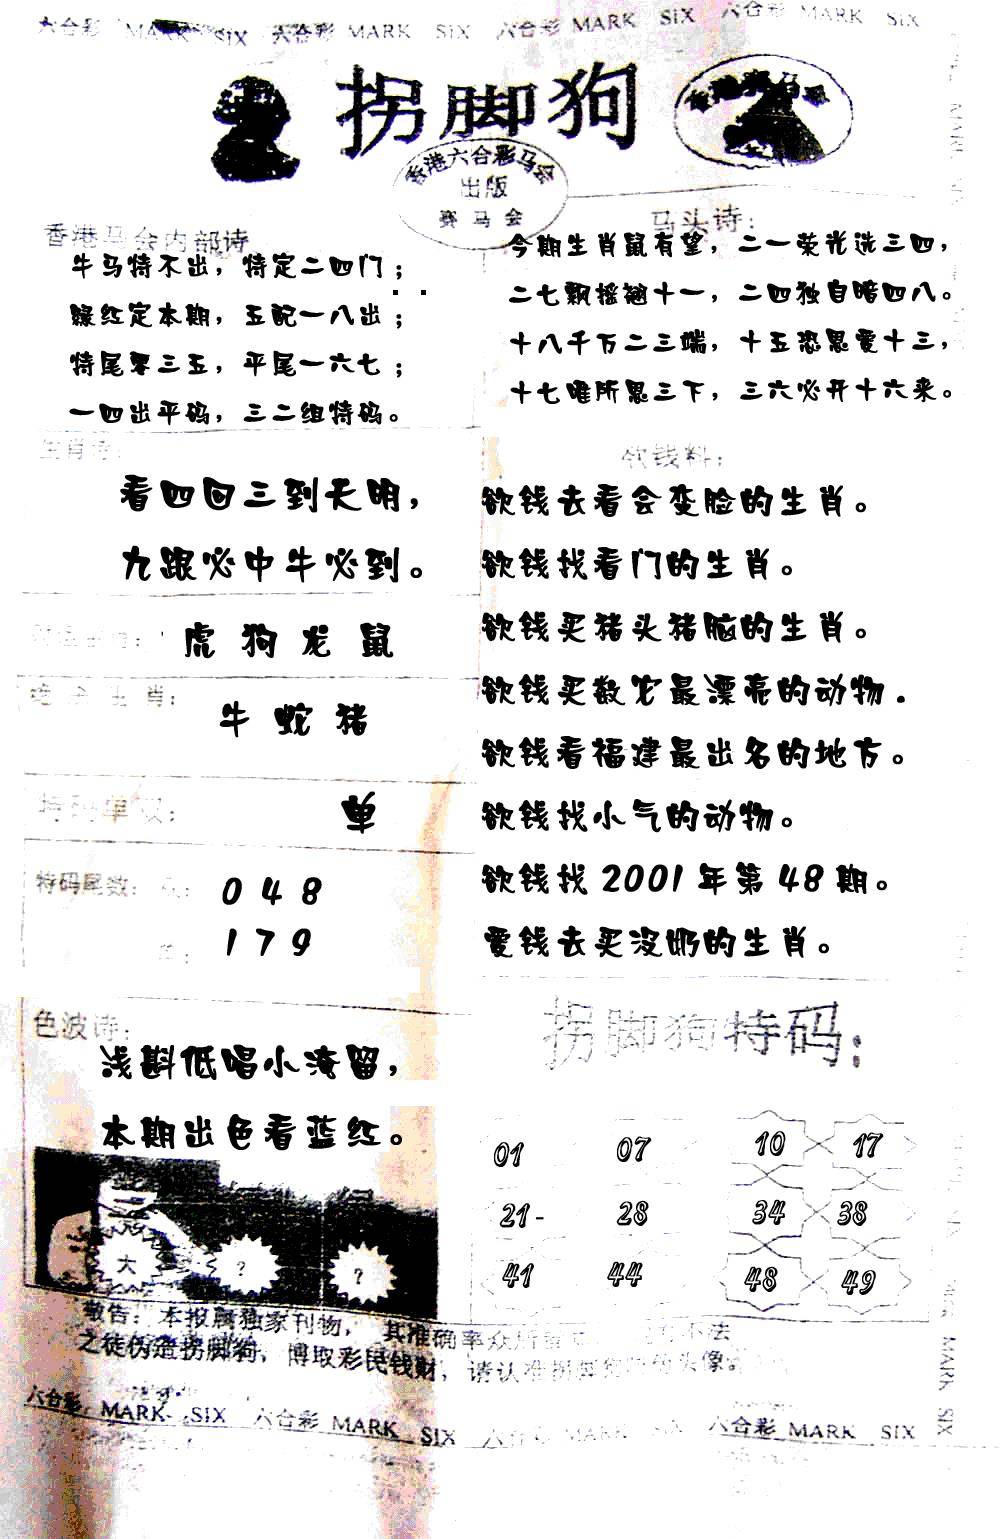 六合彩 MARK SIX 六合彩 MARK SIX 六合彩 MARK SIX 六合彩 MARK SIX
拐脚狗
香港六合彩马会
出版
赛马会
香港马会内部诗
牛马特不出，特定二四门；
绿红定本期，五配一八出；
特尾零三五，平尾一六七；
一四出平码，三二组特码。
马头诗：
今期生肖鼠有望，二一荣光选三四，
二七飘摇翘十一，二四独自暗四八。
十八千万二三端，十五恐思爱十三，
十七唯所思三下，三六必开十六来。
生肖诗：
看四回三到天明，
九跟必中牛必到。
虎 狗 龙 鼠
绝杀生肖：
牛 蛇 猪
特码单双：
单
特码尾数：
0 4 8
1 7 9
色波诗：
浅斟低唱小淹留，
本期出色看蓝红。
大 ? ?
欲钱料：
欲钱去看会变脸的生肖。
欲钱找看门的生肖。
欲钱买猪头猪脑的生肖。
欲钱买数它最漂亮的动物.
欲钱看福建最出名的地方。
欲钱找小气的动物。
欲钱找2001年第48期。
爱钱去买没奶的生肖。
拐脚狗特码：
01 07 10 17
21- 28 34 38
41 44 48 49
敬告：本报属独家刊物，其准确率众所 不法
之徒伪造拐脚狗，博取彩民钱财，请认准拐脚狗 头像。
六合彩 MARK SIX 六合彩 MARK SIX 六合彩 MARK SIX 六合彩 MARK SIX
MARK SIX